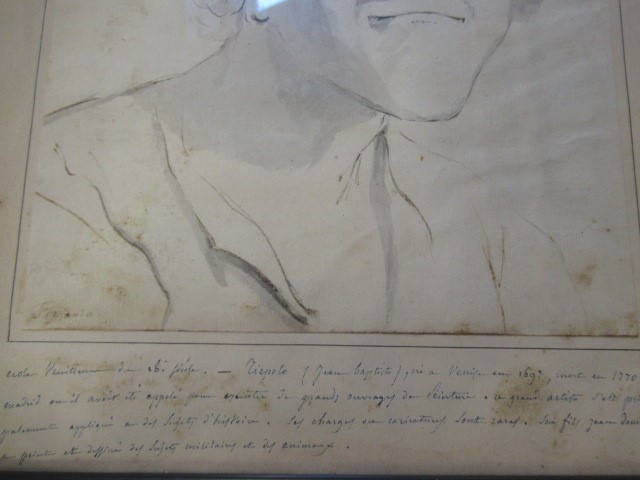 ecole Venitienne du 18e siècle. — Tiepolo (Jean baptiste), né a Venise en 1697, mort en 1770
madrid ou il avait été appelé pour executer de grands ouvrages de peinture. ce grand artiste s'est
appliqué a des sujets d'histoire. Ses charges ou caricatures sont rares. Son fils jean
a peint et dessiné des sujets militaires et des animaux.